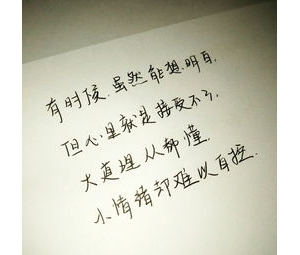 有时候.虽然能想明白.
但心里就是接受不了.
大道理人人都懂.
小情绪却难以自控.